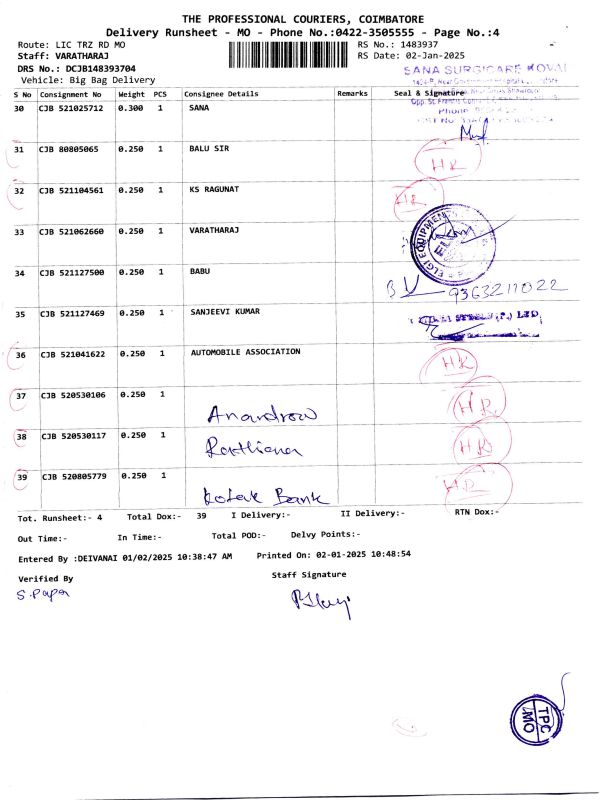 THE PROFESSIONAL COURIERS, COIMBATORE
Delivery Runsheet - MO - Phone No.:0422-3505555 - Page No.:4
Route: LIC TRZ RD MO RS No.: 1483937
Staff: VARATHARAJ RS Date: 02-Jan-2025
DRS No.: DCJB148393704
Vehicle: Big Bag Delivery
SANA SURGICARE KOVAI
S No Consignment No Weight PCS Consignee Details Remarks Seal & Signature
Opp. St. Francis
Phone
30 CJB 521025712 0.300 1 SANA
31 CJB 80805065 0.250 1 BALU SIR HR
32 CJB 521104561 0.250 1 KS RAGUNAT HR
33 CJB 521062660 0.250 1 VARATHARAJ
ELGI EQUIPMENTS
34 CJB 521127500 0.250 1 BABU
9363211022
35 CJB 521127469 0.250 1 SANJEEVI KUMAR
(P.) LTD.
36 CJB 521041622 0.250 1 AUTOMOBILE ASSOCIATION HR
37 CJB 520530106 0.250 1 HR
38 CJB 520530117 0.250 1 HR
39 CJB 520805779 0.250 1 Kotak Bank HR
Tot. Runsheet:- 4 Total Dox:- 39 I Delivery:- II Delivery:- RTN Dox:-
Out Time:- In Time:- Total POD:- Delvy Points:-
Entered By :DEIVANAI 01/02/2025 10:38:47 AM Printed On: 02-01-2025 10:48:54
Verified By Staff Signature
S.Papa
TPC
MO